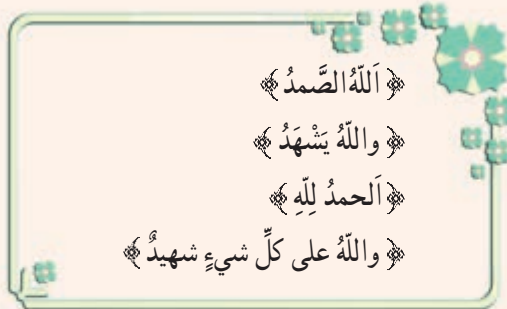 ﴿ اَللّٰهُ الصَّمدُ ﴾
﴿ واللّٰهُ يَشْهَدُ ﴾
﴿ اَلحمدُ لِلّٰهِ ﴾
﴿ واللّٰهُ على كلِّ شيءٍ شهيدٌ ﴾